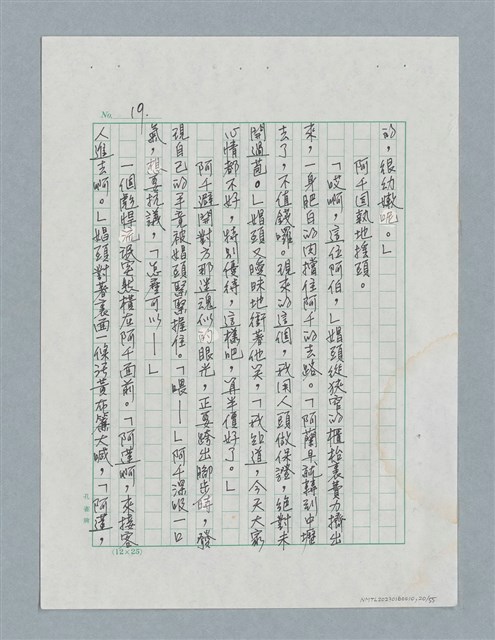 No. 19.
的，很幼嫩呢。」
阿千固執地搖頭。
「哎啊，這位阿伯，」娼頭從狹窄的櫃枱裏費力擠出
來，一身肥白的肉擋住阿千的去路。「阿蘭早就轉到中壢
去了，不值錢囉。現來的這個，我用人頭做保證，絕對未
開過苞。」娼頭又曖昧地衝著他笑，「我知道，今天大家
心情都不好，特別優待，這樣吧，算半價好了。」
阿千避開對方那迷魂似的眼光，正要踏出腳步時，發
現自己的手竟被娼頭緊緊握住。「喂——」阿千深吸一口
氣，想要抗議，「怎麼可以——」
一個彪悍流氓字裝橫在阿千面前。「阿僅啊，來接客
人進去啊。」娼頭對著裏面一條污黃布簾大喊，「阿僅，
(12×25)
NMTL20230180010, 20/55